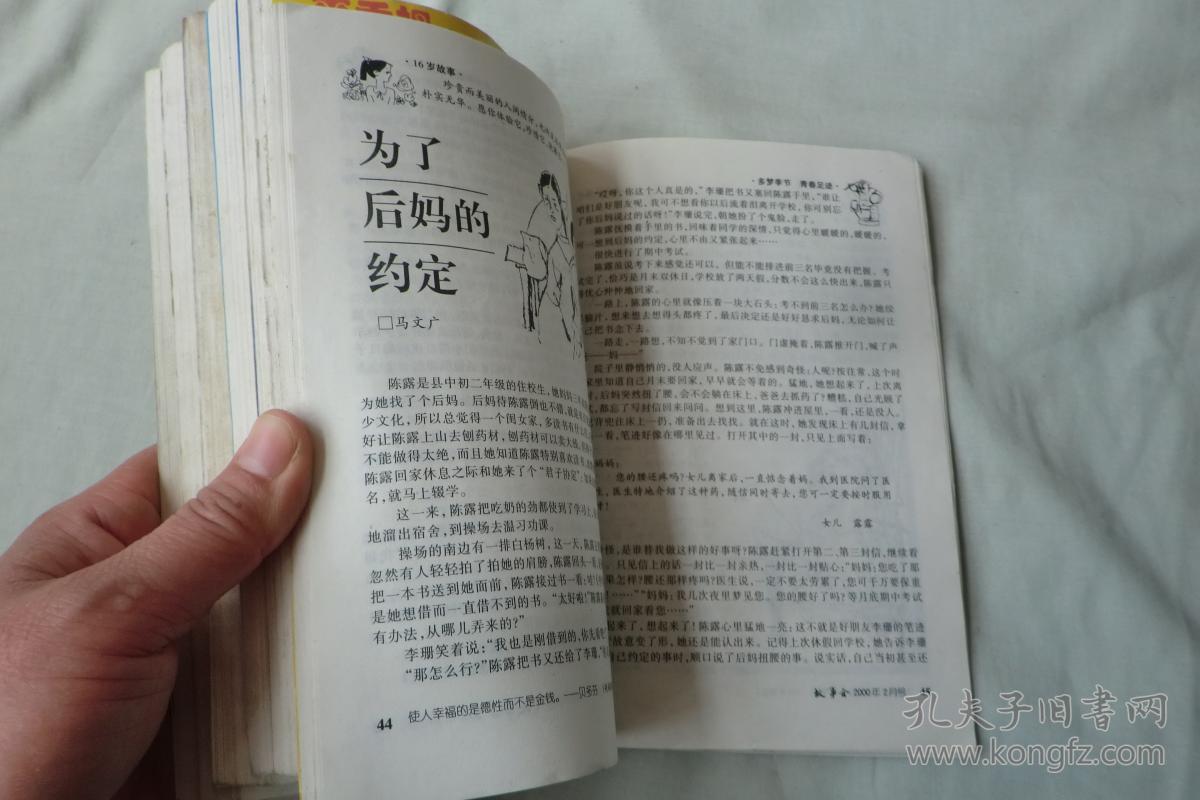 ·16岁故事·
珍贵而美丽的人间情分,
朴实无华。愿你体验它,
为了
后妈的
约定
□马文广
陈露是县中初二年级的住校生,她妈妈
为她找了个后妈。后妈待陈露倒也不错,就是
少文化,所以总觉得一个闺女家,多读书有什么
好让陈露上山去刨药材,刨药材可以卖大钱。
不能做得太绝,而且她知道陈露特别喜欢读
陈露回家休息之际和她来了个“君子协定”:
名,就马上辍学。
这一来,陈露把吃奶的劲都使到了学习上,
地溜出宿舍,到操场去温习功课。
操场的南边有一排白杨树,这一天,陈露
忽然有人轻轻拍了拍她的肩膀,陈露回头一
把一本书送到她面前,陈露接过书一看:
是她想借而一直借不到的书。“太好啦!”陈露
有办法,从哪儿弄来的?”
李珊笑着说:“我也是刚借到的,你先看
“那怎么行?”陈露把书又还给了李珊,
44 使人幸福的是德性而不是金钱。——贝多芬
·多梦季节 青春足迹·
“哎呀,你这个人真是的,”李珊把书又塞回陈露手里,“谁让
咱们是好朋友呢,我可不想看你以后流着泪离开学校,你可别忘
了你后妈说过的话呀!”李珊说完,朝她扮了个鬼脸,走了。
陈露抚摸着手里的书,回味着同学的深情,只觉得心里暖暖的,暖暖的,
可一想到后妈的约定,心里不由又紧张起来……
很快进行了期中考试。
陈露虽说考下来感觉还可以,但能不能排进前三名毕竟没有把握。考
试完了,恰巧是月末双休日,学校放了两天假,分数不会这么快出来,陈露只
得忧心忡忡地回家。
一路上,陈露的心里就像压着一块大石头:考不到前三名怎么办?她绞
脑汁,想来想去想得头都疼了,最后决定还是好好恳求后妈,无论如何让
己把书念下去。
一路走,一路想,不知不觉到了家门口。门虚掩着,陈露推开门,喊了声
——妈——”
院子里静悄悄的,没人应声。陈露不免感到奇怪:人呢?按往常,这个时
家里知道自己月末要回家,早早就会等着的。猛地,她想起来了,上次离
时,后妈突然扭了腰,会不会躺在床上,爸爸去抓药了?糟糕,自己光顾了
,都忘了写封信回来问问。想到这里,陈露冲进屋里,一看,还是没人。
背兜往床上一扔,准备出去找找。就在这时,她发现床上有几封信,拿
一看,笔迹好像在哪里见过。打开其中的一封,只见上面写着:
妈妈:
您的腰还疼吗?女儿离家后,一直惦念着妈。我到医院问了医
生,医生特地介绍了这种药,随信同时寄去,您可一定要按时服用
!
女儿 露露
怪,是谁替我做这样的好事呀?陈露赶紧打开第二、第三封信,继续看
,只见信上的话一封比一封亲热,一封比一封贴心:“妈妈:您吃了那
果怎样?腰还那样疼吗?医生说,一定不要太劳累了,您可千万要保重
……”“妈妈:我几次夜里梦见您。您的腰好了吗?等月底期中考试
就回家看您……”
起来了,想起来了!陈露心里猛地一亮:这不就是好朋友李珊的笔迹
故意变了形,她还是能认出来。记得上次休假回学校,她告诉李珊
己约定的事时,顺口说了后妈扭腰的事。说实话,自己当初甚至还
故事会 2000年2月号 45
孔夫子旧书网
www.kongfz.com